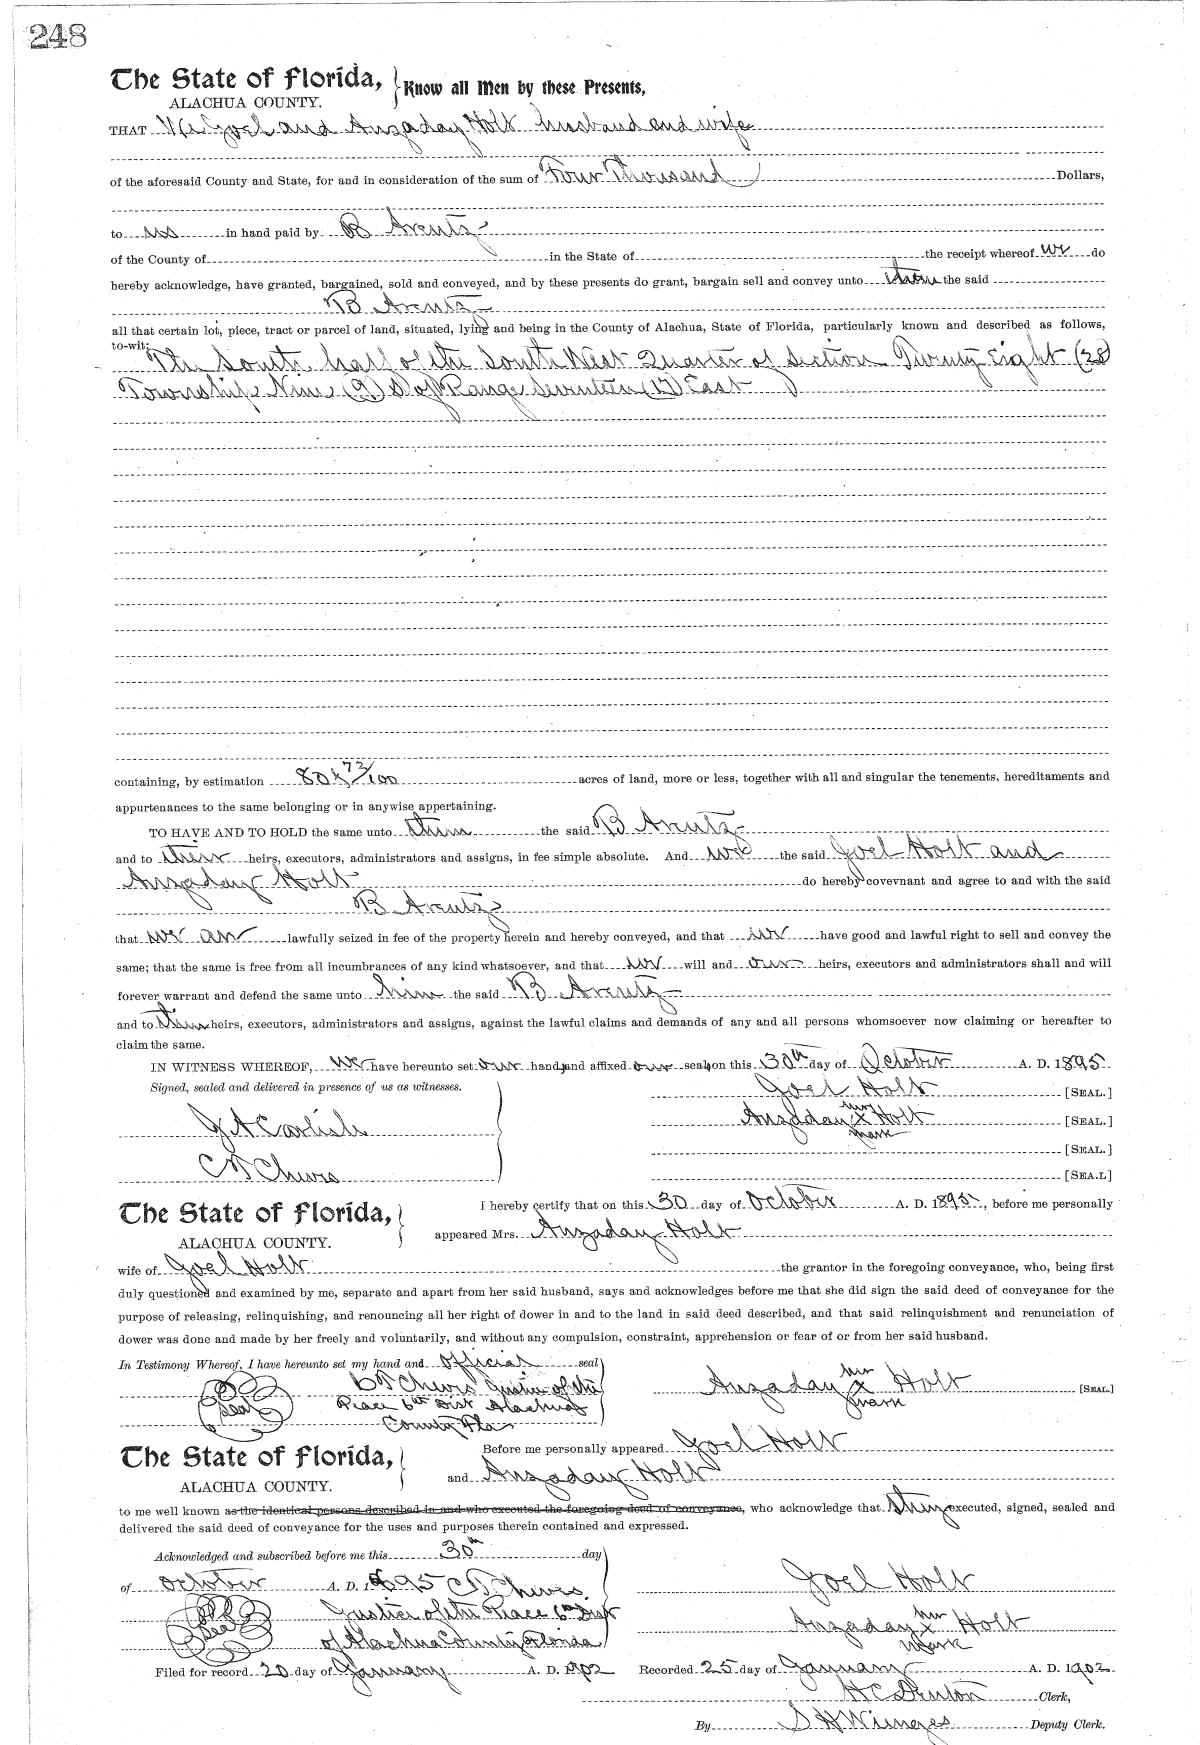 248
The State of Florida, } Know all Men by these Presents,
ALACHUA COUNTY.
THAT We Joel and Anzaday Holt husband and wife
of the aforesaid County and State, for and in consideration of the sum of Four Thousand Dollars,
to us in hand paid by B Arentz
of the County of in the State of the receipt whereof we do
hereby acknowledge, have granted, bargained, sold and conveyed, and by these presents do grant, bargain sell and convey unto them the said
B Arentz
all that certain lot, piece, tract or parcel of land, situated, lying and being in the County of Alachua, State of Florida, particularly known and described as follows,
to-wit:
The South half of the South West Quarter of Section Twenty Eight (28)
Township Nine (9) S of Range Seventeen (17) East
containing, by estimation 80 & 72/100 acres of land, more or less, together with all and singular the tenements, hereditaments and
appurtenances to the same belonging or in anywise appertaining.
TO HAVE AND TO HOLD the same unto them the said B Arentz
and to their heirs, executors, administrators and assigns, in fee simple absolute. And we the said Joel Holt and
Anzaday Holt do hereby covevnant and agree to and with the said
B Arentz
that we are lawfully seized in fee of the property herein and hereby conveyed, and that we have good and lawful right to sell and convey the
same; that the same is free from all incumbrances of any kind whatsoever, and that we will and our heirs, executors and administrators shall and will
forever warrant and defend the same unto him the said B Arentz
and to their heirs, executors, administrators and assigns, against the lawful claims and demands of any and all persons whomsoever now claiming or hereafter to
claim the same.
IN WITNESS WHEREOF, We have hereunto set our hands and affixed our seals on this 30th day of October A. D. 1895
Signed, sealed and delivered in presence of us as witnesses.
Joel Holt [SEAL.]
her
J A Carlisle Anzaday X Holt [SEAL.]
mark
[SEAL.]
C N Cheves [SEA.L]
The State of Florida, } I hereby certify that on this 30 day of October A. D. 1895, before me personally
ALACHUA COUNTY. appeared Mrs. Anzaday Holt
wife of Joel Holt the grantor in the foregoing conveyance, who, being first
duly questioned and examined by me, separate and apart from her said husband, says and acknowledges before me that she did sign the said deed of conveyance for the
purpose of releasing, relinquishing, and renouncing all her right of dower in and to the land in said deed described, and that said relinquishment and renunciation of
dower was done and made by her freely and voluntarily, and without any compulsion, constraint, apprehension or fear of or from her said husband.
In Testimony Whereof, I have hereunto set my hand and official seal
her
C N Cheves Justice of the Anzaday X Holt [SEAL]
mark
Seal Peace 6th Dist Alachua
County Fla
The State of Florida, } Before me personally appeared Joel Holt
ALACHUA COUNTY. and Anzaday Holt
to me well known as the identical persons described in and who executed the foregoing deed of conveyance, who acknowledge that they executed, signed, sealed and
delivered the said deed of conveyance for the uses and purposes therein contained and expressed.
Acknowledged and subscribed before me this 30th day
of October A. D. 1895 C N Cheves Joel Holt
Seal Justice of the Peace 6th Dist
her
of Alachua County Florida Anzaday X Holt
mark
Filed for record 20 day of January A. D. 1902 Recorded 25 day of January A. D. 1902
H C Denton Clerk,
By S H Wienges Deputy Clerk.